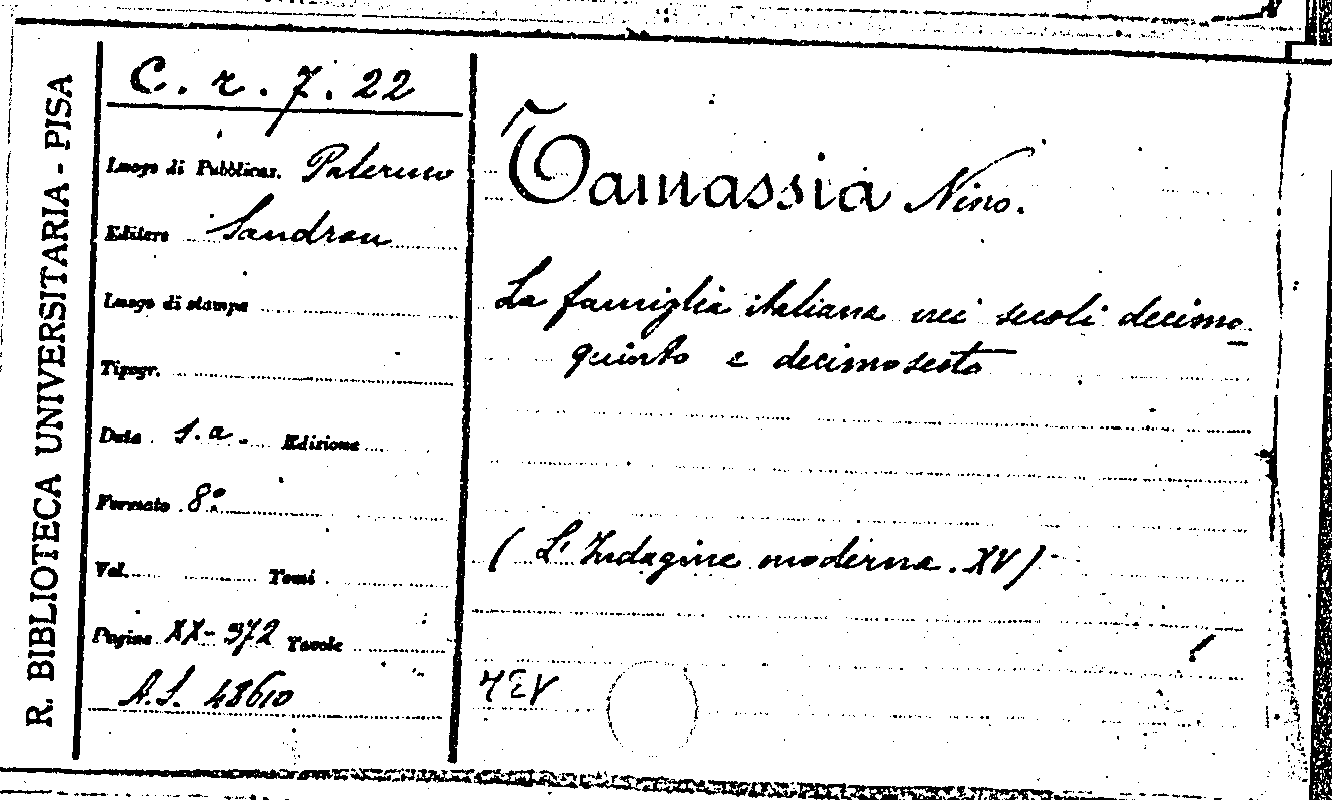 R. BIBLIOTECA UNIVERSITARIA - PISA
C. r. 7. 22
Luogo di Pubblicaz. Palermo
Editore Sandron
Luogo di stampa
Tipogr.
Data s. a. Edizione
Formato 8º
Vol. Tomi
Pagine XX-372 Tavole
A.S. 48610
Tamassia Nino.
La famiglia italiana nei secoli decimo
quinto e decimosesto
(L'Indagine moderna. XV)